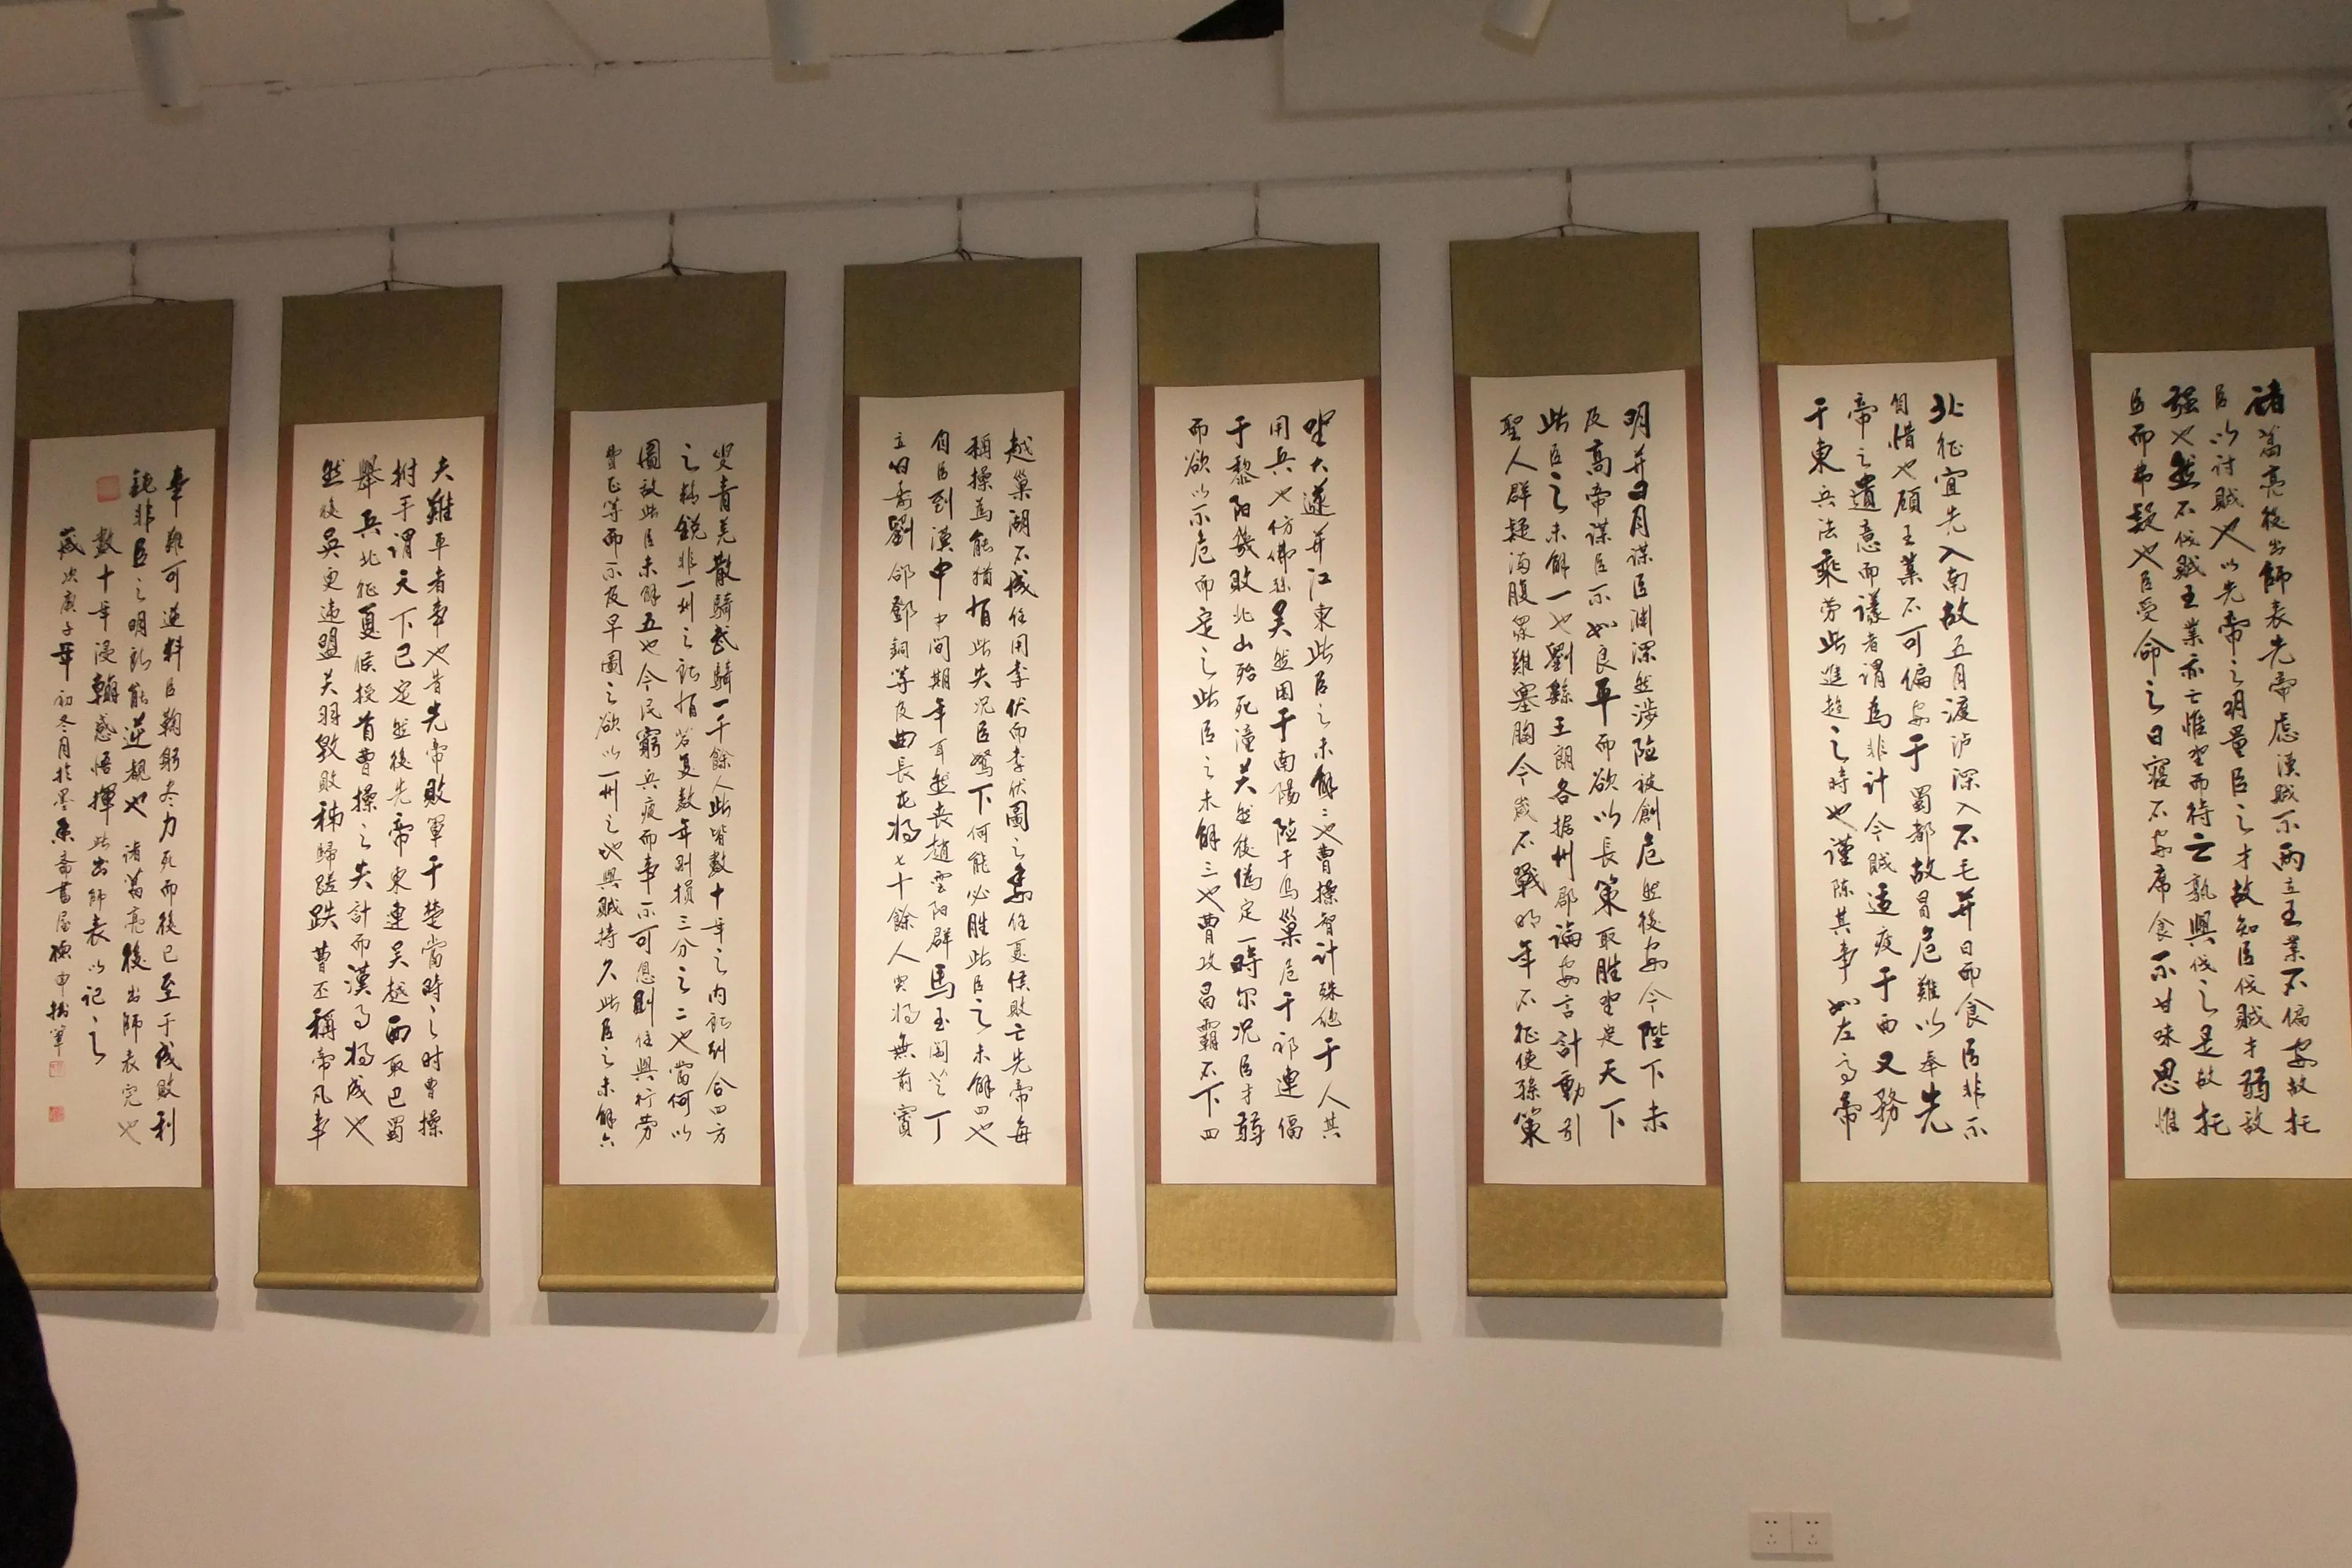 諸葛亮後出師表先帝虑漢賊不两立王業不偏安故托
臣以讨賊也以先帝之明量臣之才故知臣伐賊才弱敌
强也然不伐賊王業亦亡惟坐而待亡孰與伐之是故托
臣而弗疑也臣受命之日寝不安席食不甘味思惟
北征宜先入南故五月渡泸深入不毛并日而食臣非不
自惜也顾王業不可偏安于蜀都故冒危難以奉先
帝之遺意而議者谓為非计今賊适疲于西又務
于東兵法乘劳此進趋之時也谨陈其事如左高帝
明并日月谋臣渊深然涉险被創危然後安今陛下未
及高帝谋臣不如良平而欲以長策取胜坐定天下
此臣之未解一也劉繇王朗各据州郡論安言計動引
聖人群疑满腹眾難塞胸今歲不戰明年不征使孫策
坐大遂并江東此臣之未解二也曹操智计殊绝于人其
用兵也仿佛孫吴然困于南陽險于乌巢危于祁連偪
于黎阳幾敗北山殆死潼关然後偽定一時尔况臣才弱
而欲以不危而定之此臣之未解三也曹攻昌霸不下四
越巢湖不成任用李伏而李伏圖之委任夏侯敗亡先帝每
稱操為能猶有此失况臣駑下何能必胜此臣之未解四也
自臣到漢中中间期年耳然丧趙雲阳群馬玉阎芝丁
立白壽劉郃鄧銅等及曲長屯将七十餘人突将無前賨
叟青羌散騎武騎一千餘人此皆數十年之内所糾合四方
之精鋭非一州之所有若复數年則損三分之二也當何以
圖敌此臣未解五也今民窮兵疲而事不可息則住與行劳
費正等而不及早圖之欲以一州之地與賊持久此臣之未解六
夫難平者事也昔先帝敗軍于楚當時之时曹操
拊手谓天下已定然後先帝東連吴越西取巴蜀
舉兵北征夏侯授首曹操之失計而漢事将成也
然後吴更违盟关羽毁敗秭歸蹉跌曹丕稱帝凡事
事難可逆料臣鞠躬尽力死而後已至于成敗利
鈍非臣之明所能逆覩也 诸葛亮後出師表完也
數十年浸翰感悟揮此出師表以记之
歲次庚子年初冬月於墨香斋書屋 拙筆